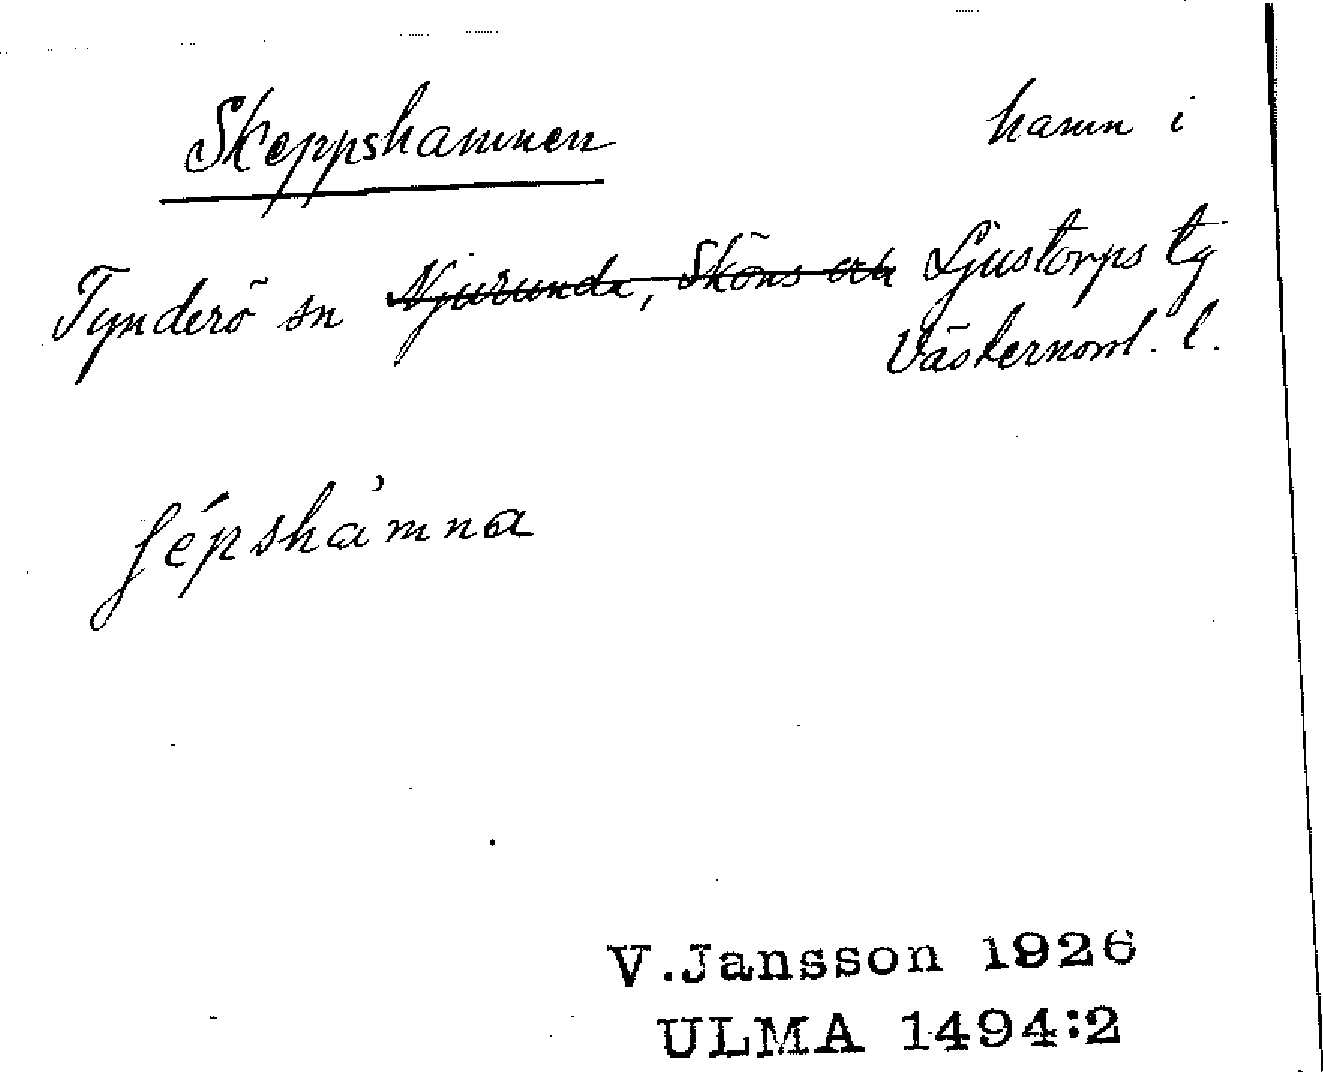 Skeppshamnen hamn i
Tynderö sn ~~Njurunda, Sköns och~~ Ljustorps tg
Västernorrl. l.
ʃépshȧ̀mna
V.Jansson 1926
ULMA 1494:2